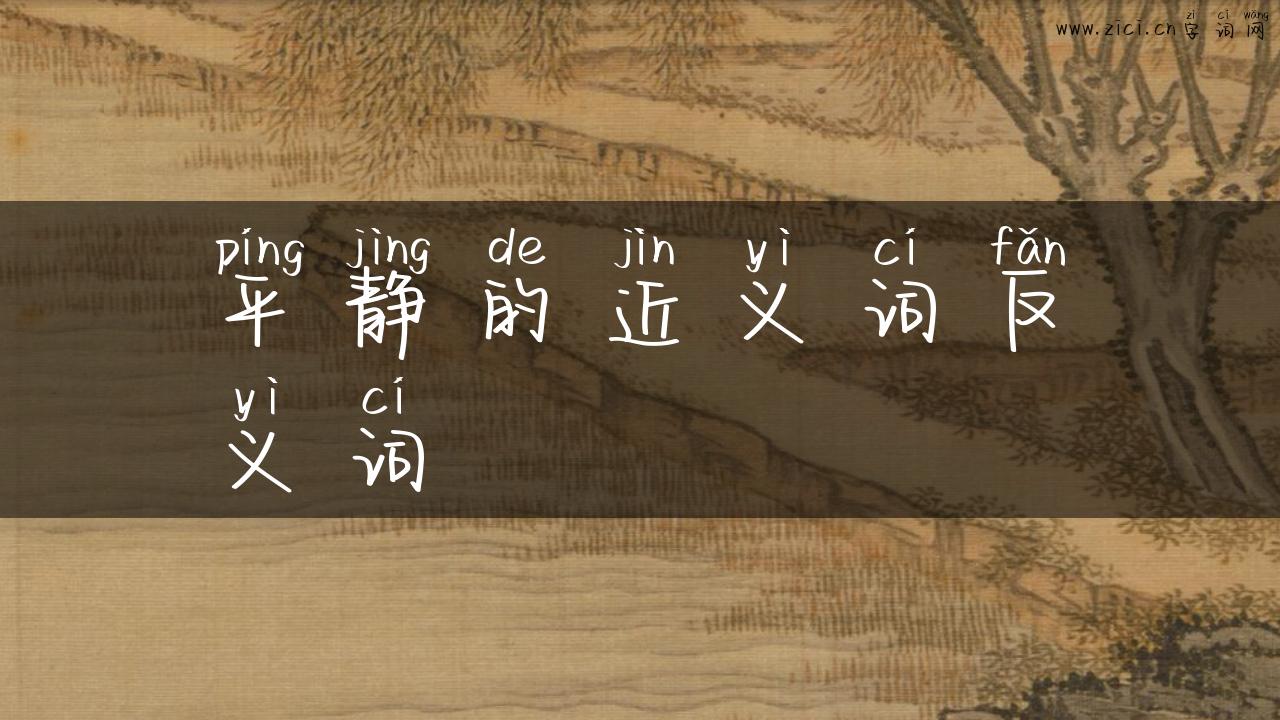 zì cí wǎng
www.zici.cn字词网
píng jìng de jìn yì cí fǎn
平静的近义词反
yì cí
义词